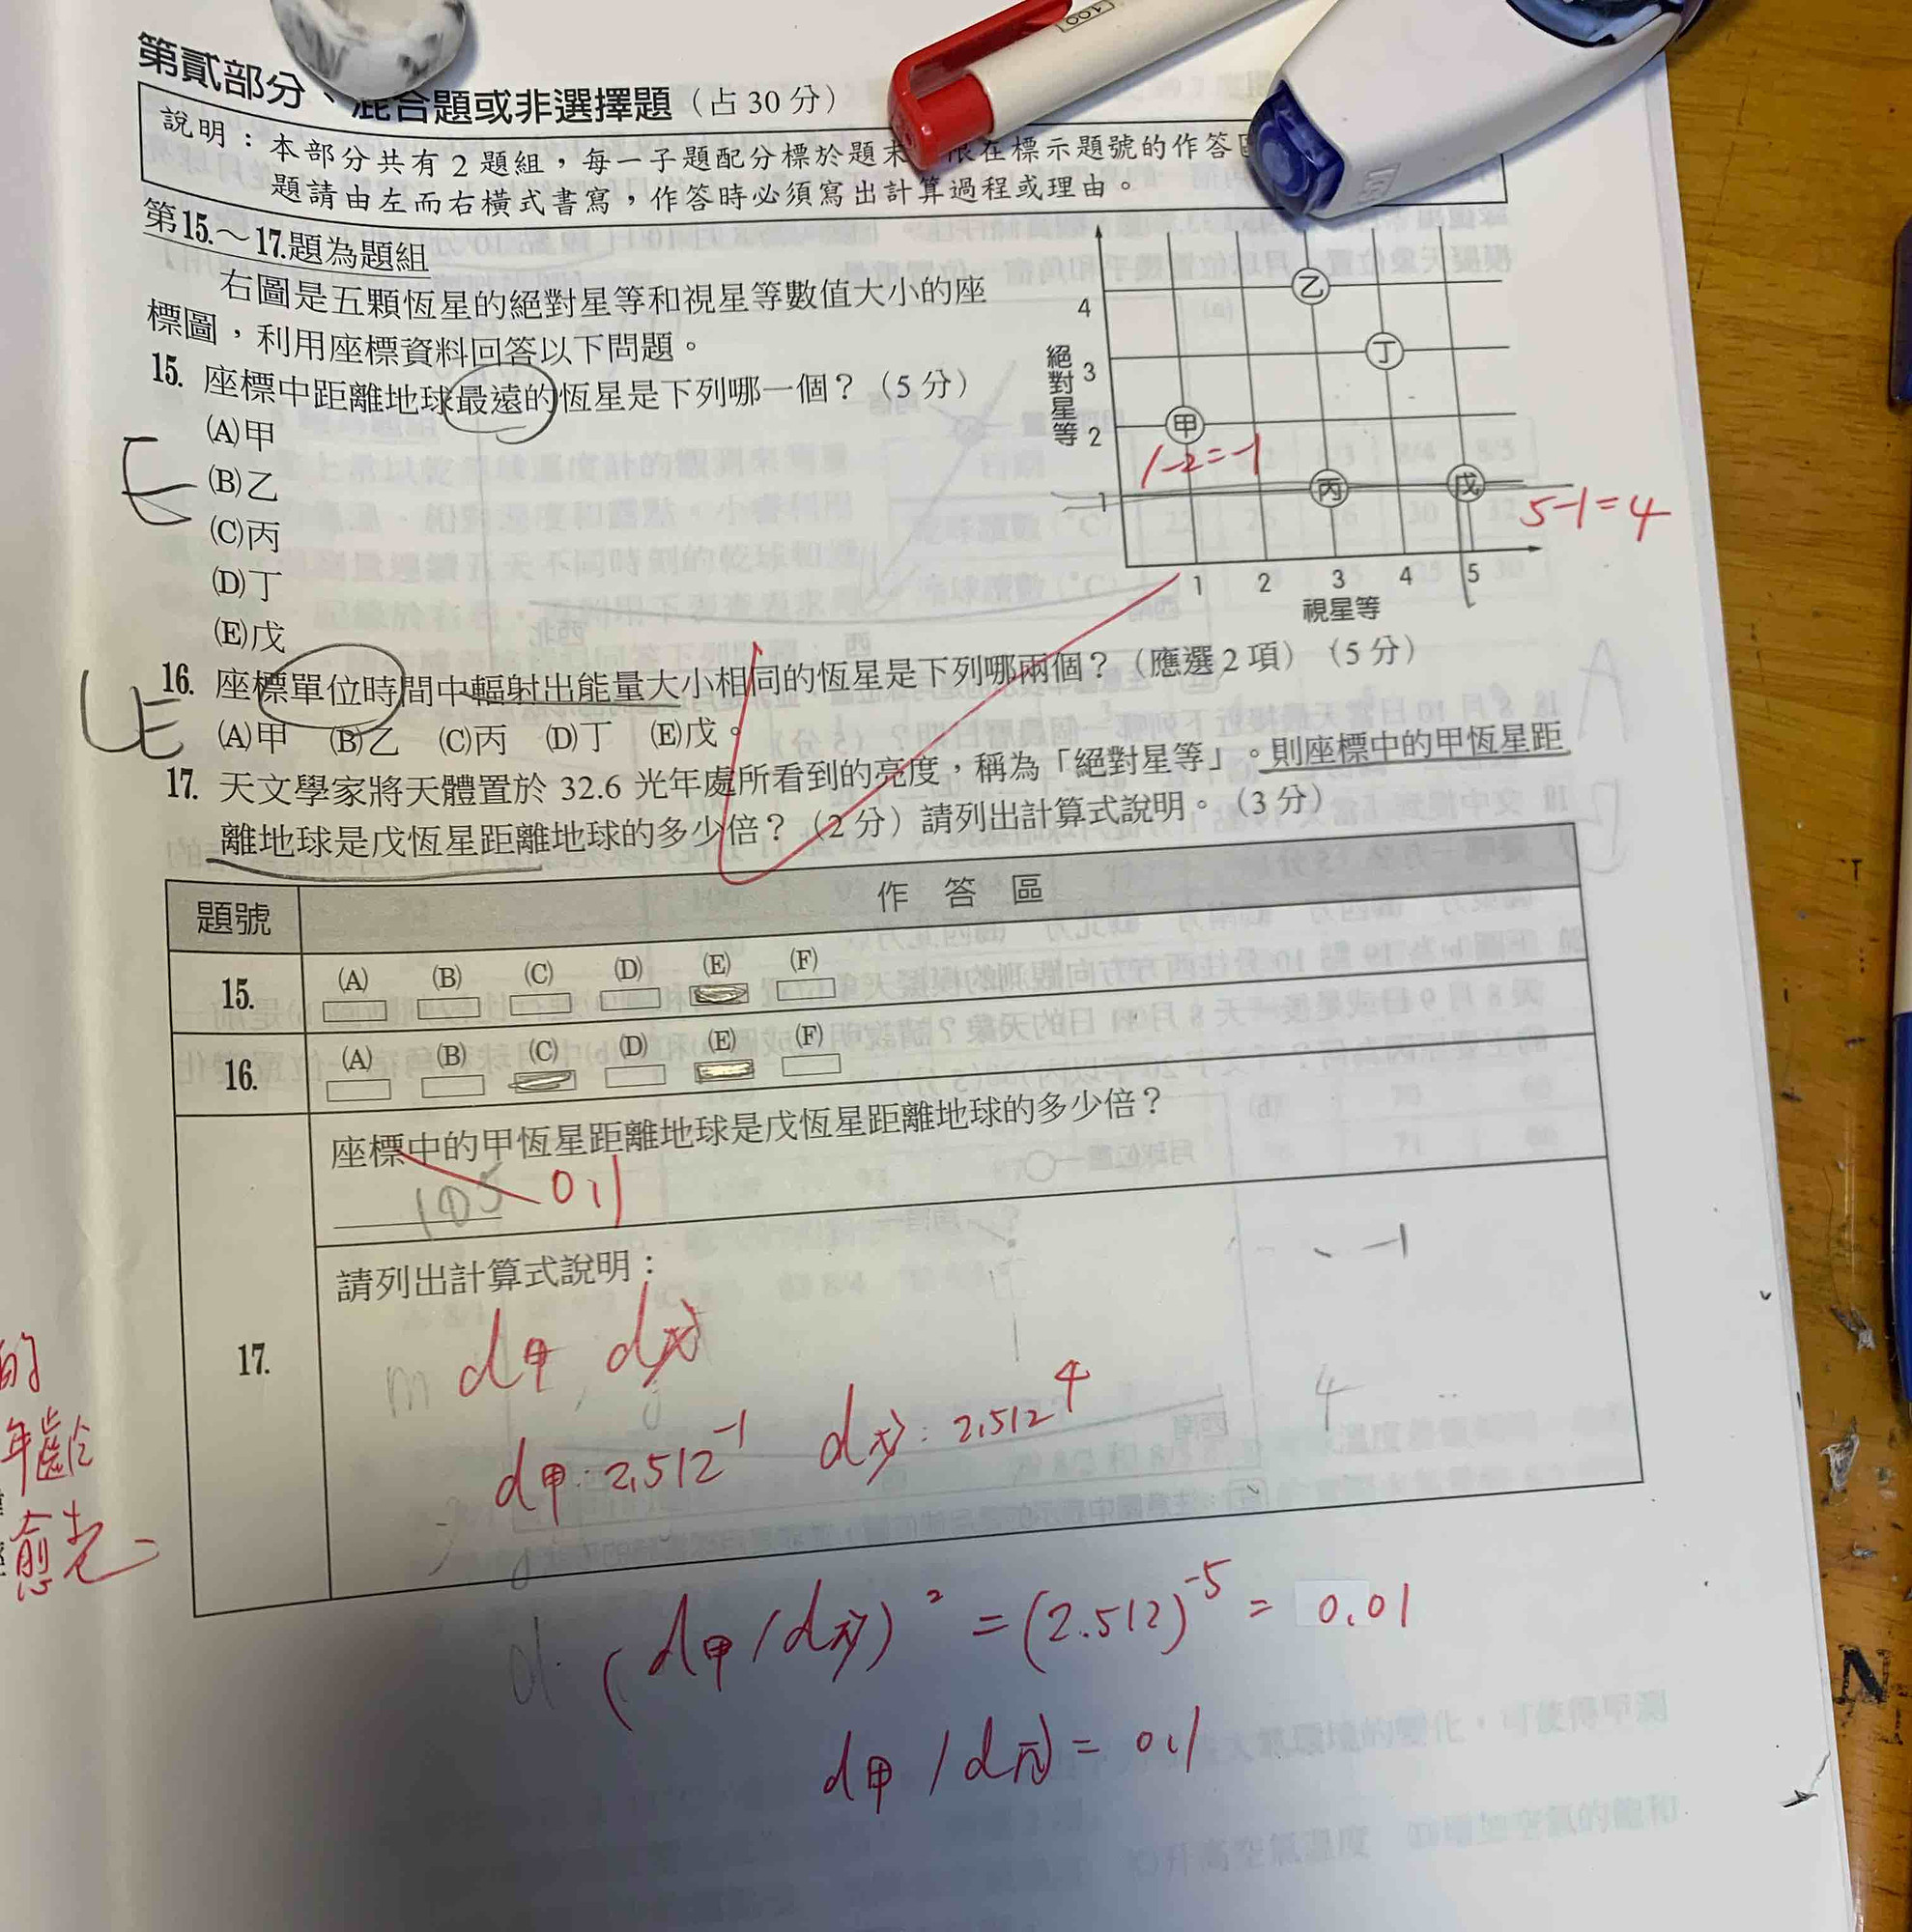 第貳部分、混合題或非選擇題（占30分）
說明：本部分共有2題組，每一子題配分標於題末 限在標示題號的作答區
題請由左而右橫式書寫，作答時必須寫出計算過程或理由。
第15.～17.題為題組
右圖是五顆恆星的絕對星等和視星等數值大小的座
標圖，利用座標資料回答以下問題。
15. 座標中距離地球最遠的恆星是下列哪一個？（5分）
(A)甲
(B)乙
(C)丙
(D)丁
(E)戊
E
絕對星等
4
3
2
1
乙
丁
甲
丙
戊
1-2=-1
5-1=4
1 2 3 4 5
視星等
16. 座標單位時間中輻射出能量大小相同的恆星是下列哪兩個？（應選2項）（5分）
(A)甲 (B)乙 (C)丙 (D)丁 (E)戊。
CE
17. 天文學家將天體置於 32.6 光年處所看到的亮度，稱為「絕對星等」。則座標中的甲恆星距
離地球是戊恆星距離地球的多少倍？（2分）請列出計算式說明。（3分）
題號 作答區
15. (A) (B) (C) (D) (E) (F)
16. (A) (B) (C) (D) (E) (F)
17.
座標中的甲恆星距離地球是戊恆星距離地球的多少倍？
0.1
請列出計算式說明：
-1
4
d甲
d甲:2.512⁻¹ d戊:2.512⁴
(d甲/d戊)² = (2.512)⁻⁵ = 0.01
d甲/d戊 = 0.1
的
年齡
愈老
N